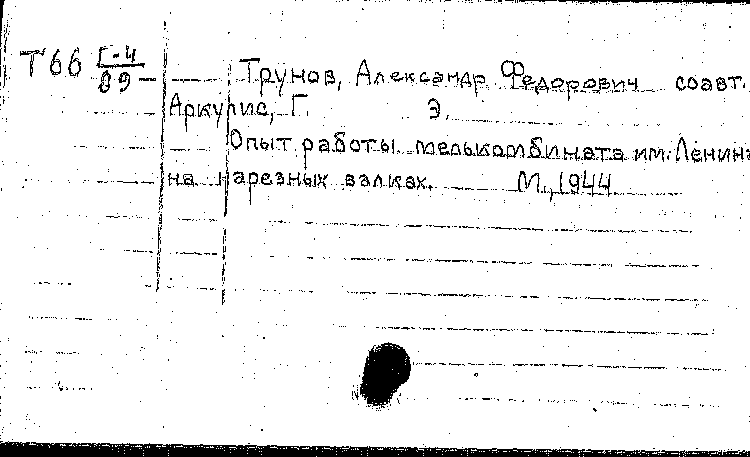 Т66 Г-4
89
Трунов, Александр Федорович соавт.
Аркулис, Г. Э.
Опыт работы мелькомбината им. Ленина
на нарезных валках. М., 1944